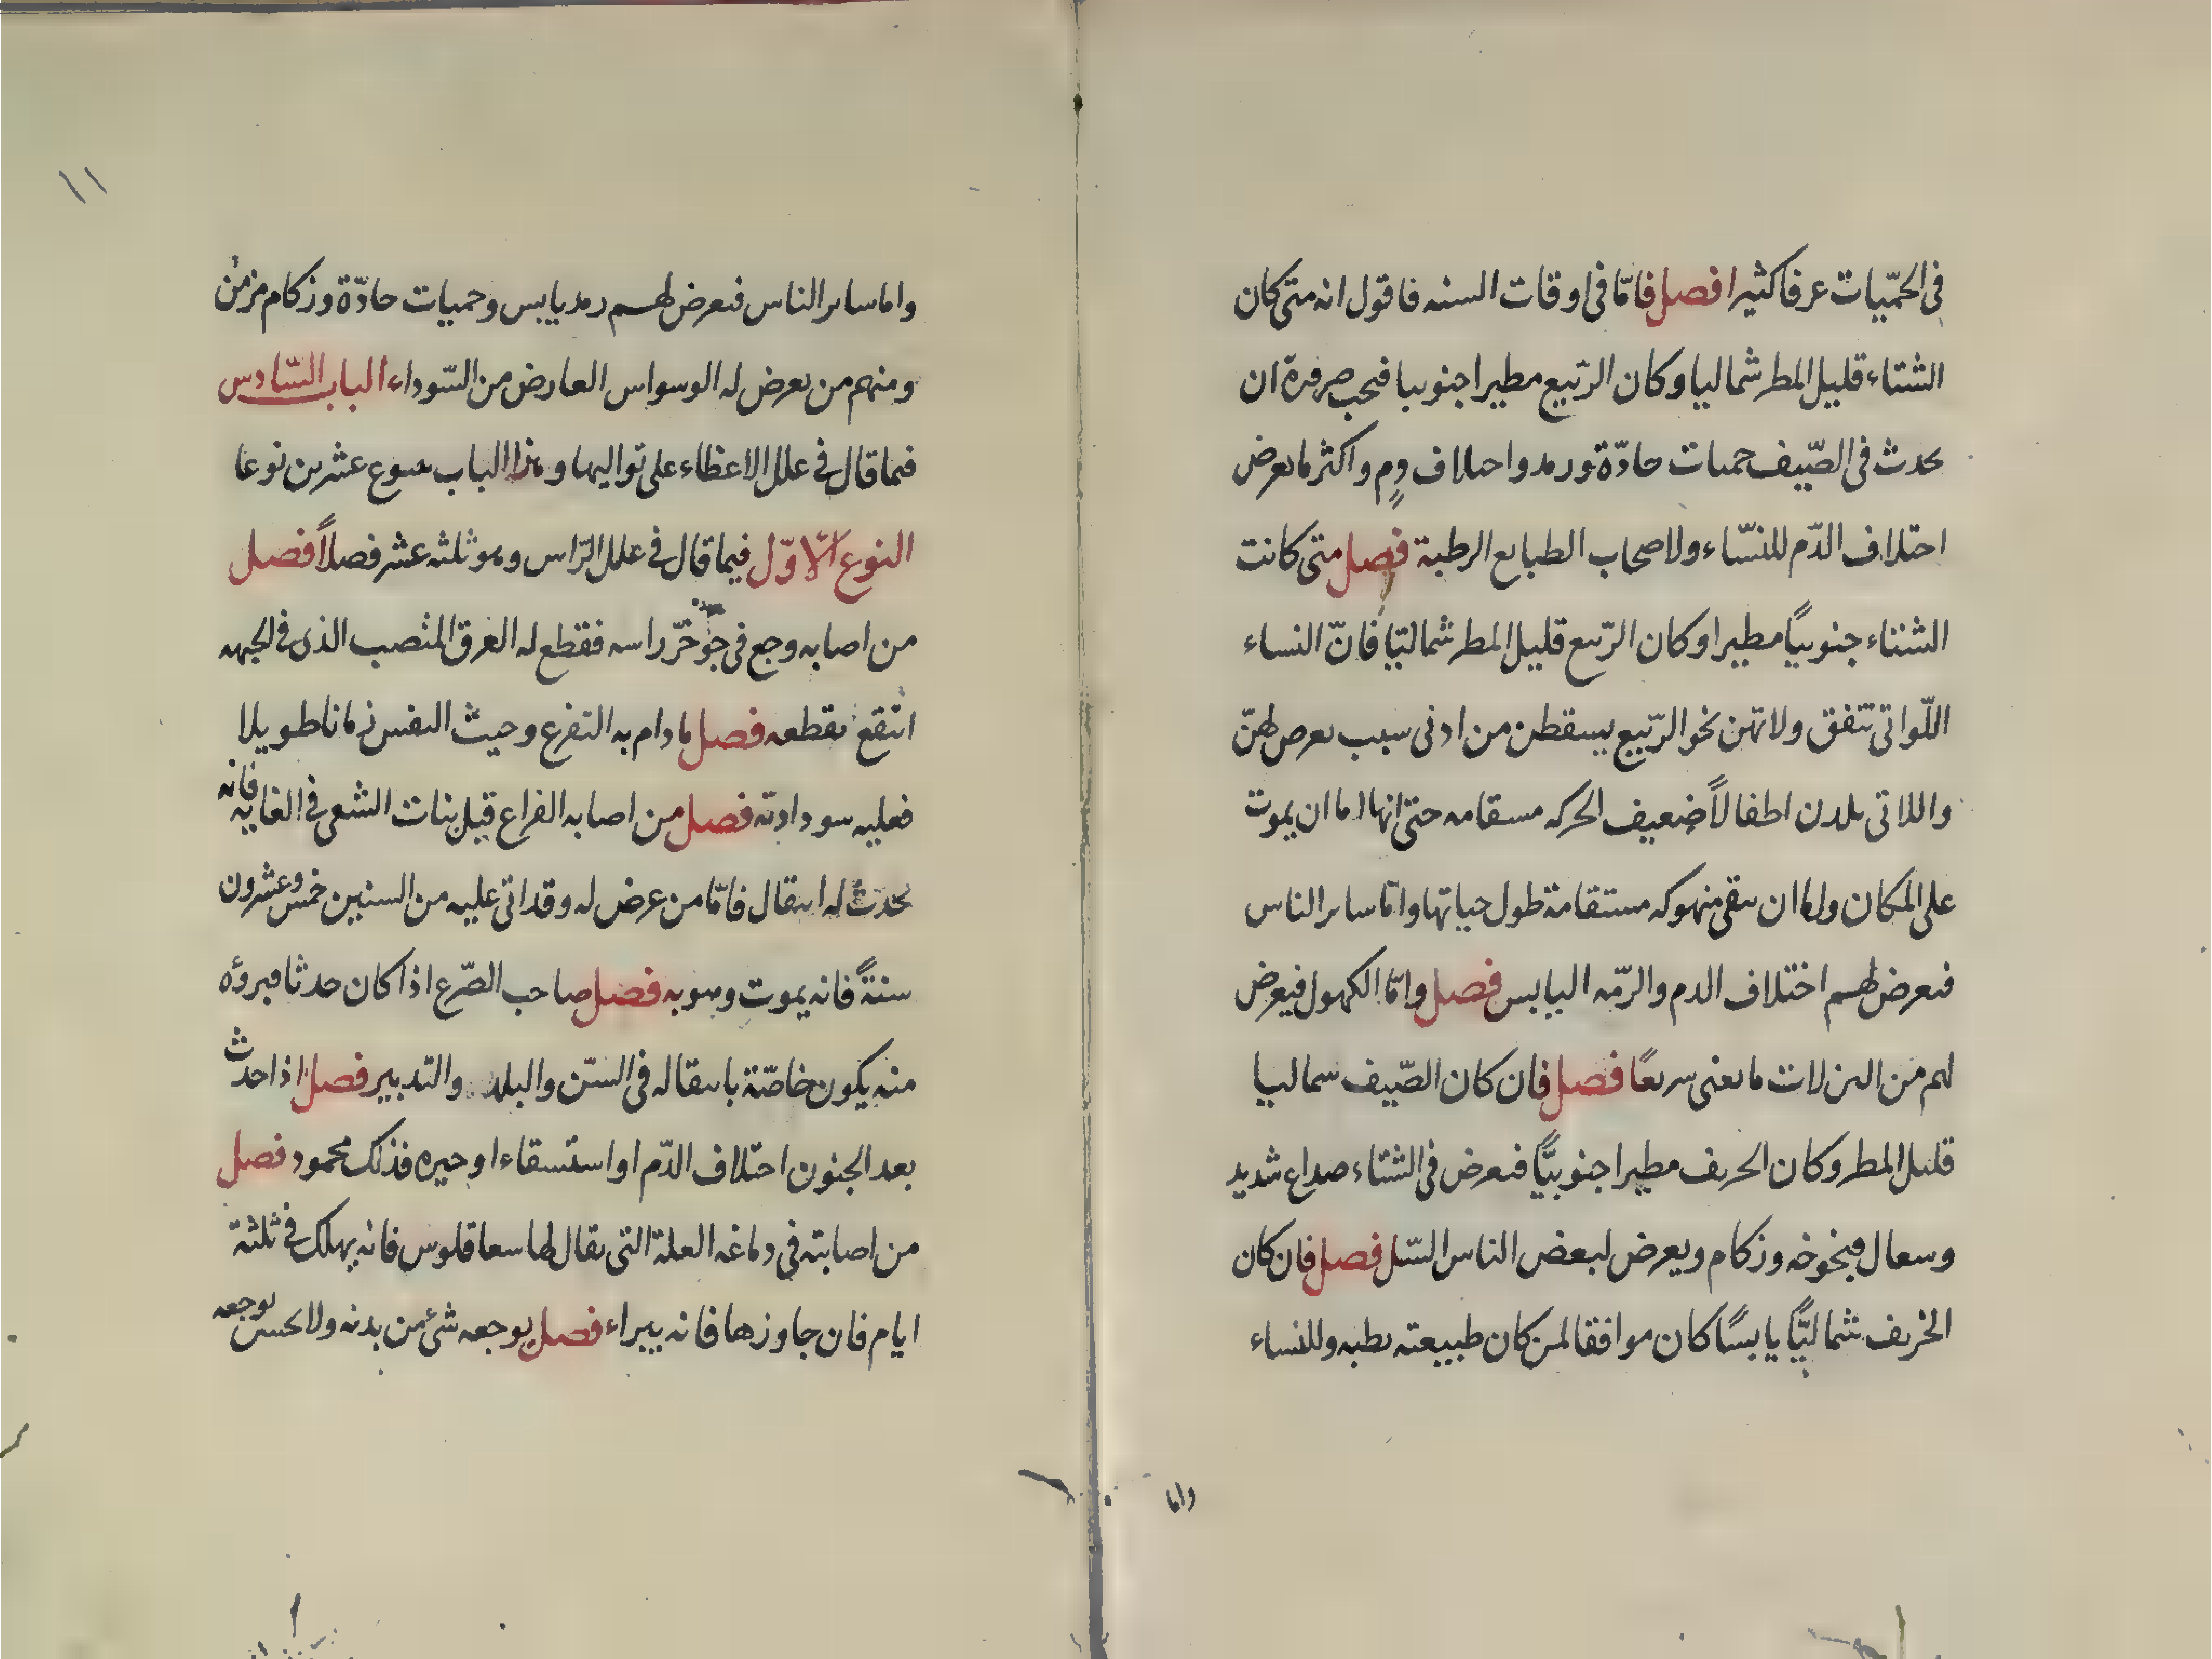 فى الحمّيات عرفا كثيرا فصل فامّا فى اوقات السنه فاقول انه متى كان
الشتاء قليل المطر شماليا وكان الرّبيع مطيرا جنوبيا فيجب ضرورة ان
يحدث فى الصّيف حميات حادّة ورمد واختلاف دم واكثر ما يعرض
اختلاف الدّم للنسّاء ولاصحاب الطبايع الرطبة فصل متى كانت
الشتاء جنوبيًا مطيرا وكان الرّبيع قليل المطر شماليّا فانّ النساء
اللّواتى تتفق ولادتهن نحو الرّبيع يسقطن من ادنى سبب يعرض لهنّ
واللاتى يلدن اطفالاً ضعيف الحركه مسقامه حتى انها اما ان يموت
على المكان واما ان تبقى منهوكه مستقامة طول حياتها وامّا ساير الناس
فيعرض لهم اختلاف الدم والرّمه اليابس فصل وامّا الكهول فيعرض
لهم من النزلات ما يفنى سريعًا فصل فان كان الصّيف شماليا
قليل المطر وكان الخريف مطيرا جنوبيًّا فيعرض فى الشتاء صداع شديد
وسعال وبخوخه وزكام ويعرض لبعض الناس السّل فصل فان كان
الخريف شماليًّا يابسًا كان موافقا لمن كان طبيعته رطبه وللنساء
واما
١١
واما ساير الناس فيعرض لهم رمد يابس وحميات حادّة وزكام مزمن
ومنهم من يعرض له الوسواس العارض من السّوداء الباب السّادس
فيما قال فى علل الاعظاء على تواليها وهذا الباب عشرين نوعا
النوع الاوّل فيما قال فى علل الرّاس وهو ثلثه عشر فصلاً فصل
من اصابه وجع فى مؤخّر راسه فقطع له العرق المنصب الذى فى الجبهه
انتفع بقطعه فصل ما دام به التفزع وخبث النفس زمانا طويلا
فعليه سوداوته فصل من اصابه الفراع قبل بنات الشعر فى الغايه فانه
يحدث له انتقال فامّا من عرض له وقد اتى عليه من السنين خمس وعشرون
سنةً فانه يموت وهو به فصل صاحب الصّرع اذا كان حدثا فبروءه
منه يكون خاصّة بانتقاله فى السّن والبلد والتدبير فصل اذا حدث
بعد الجنون اختلاف الدّم او استسقاء او حيره فذلك محمود فصل
من اصابته فى دماغه العلة التى يقال لها سعاقلوس فانه يهلك فى ثلثة
ايام فان جاوزها فانه يبراء فصل يوجعه شئ من بدنه ولا يحس بوجعه